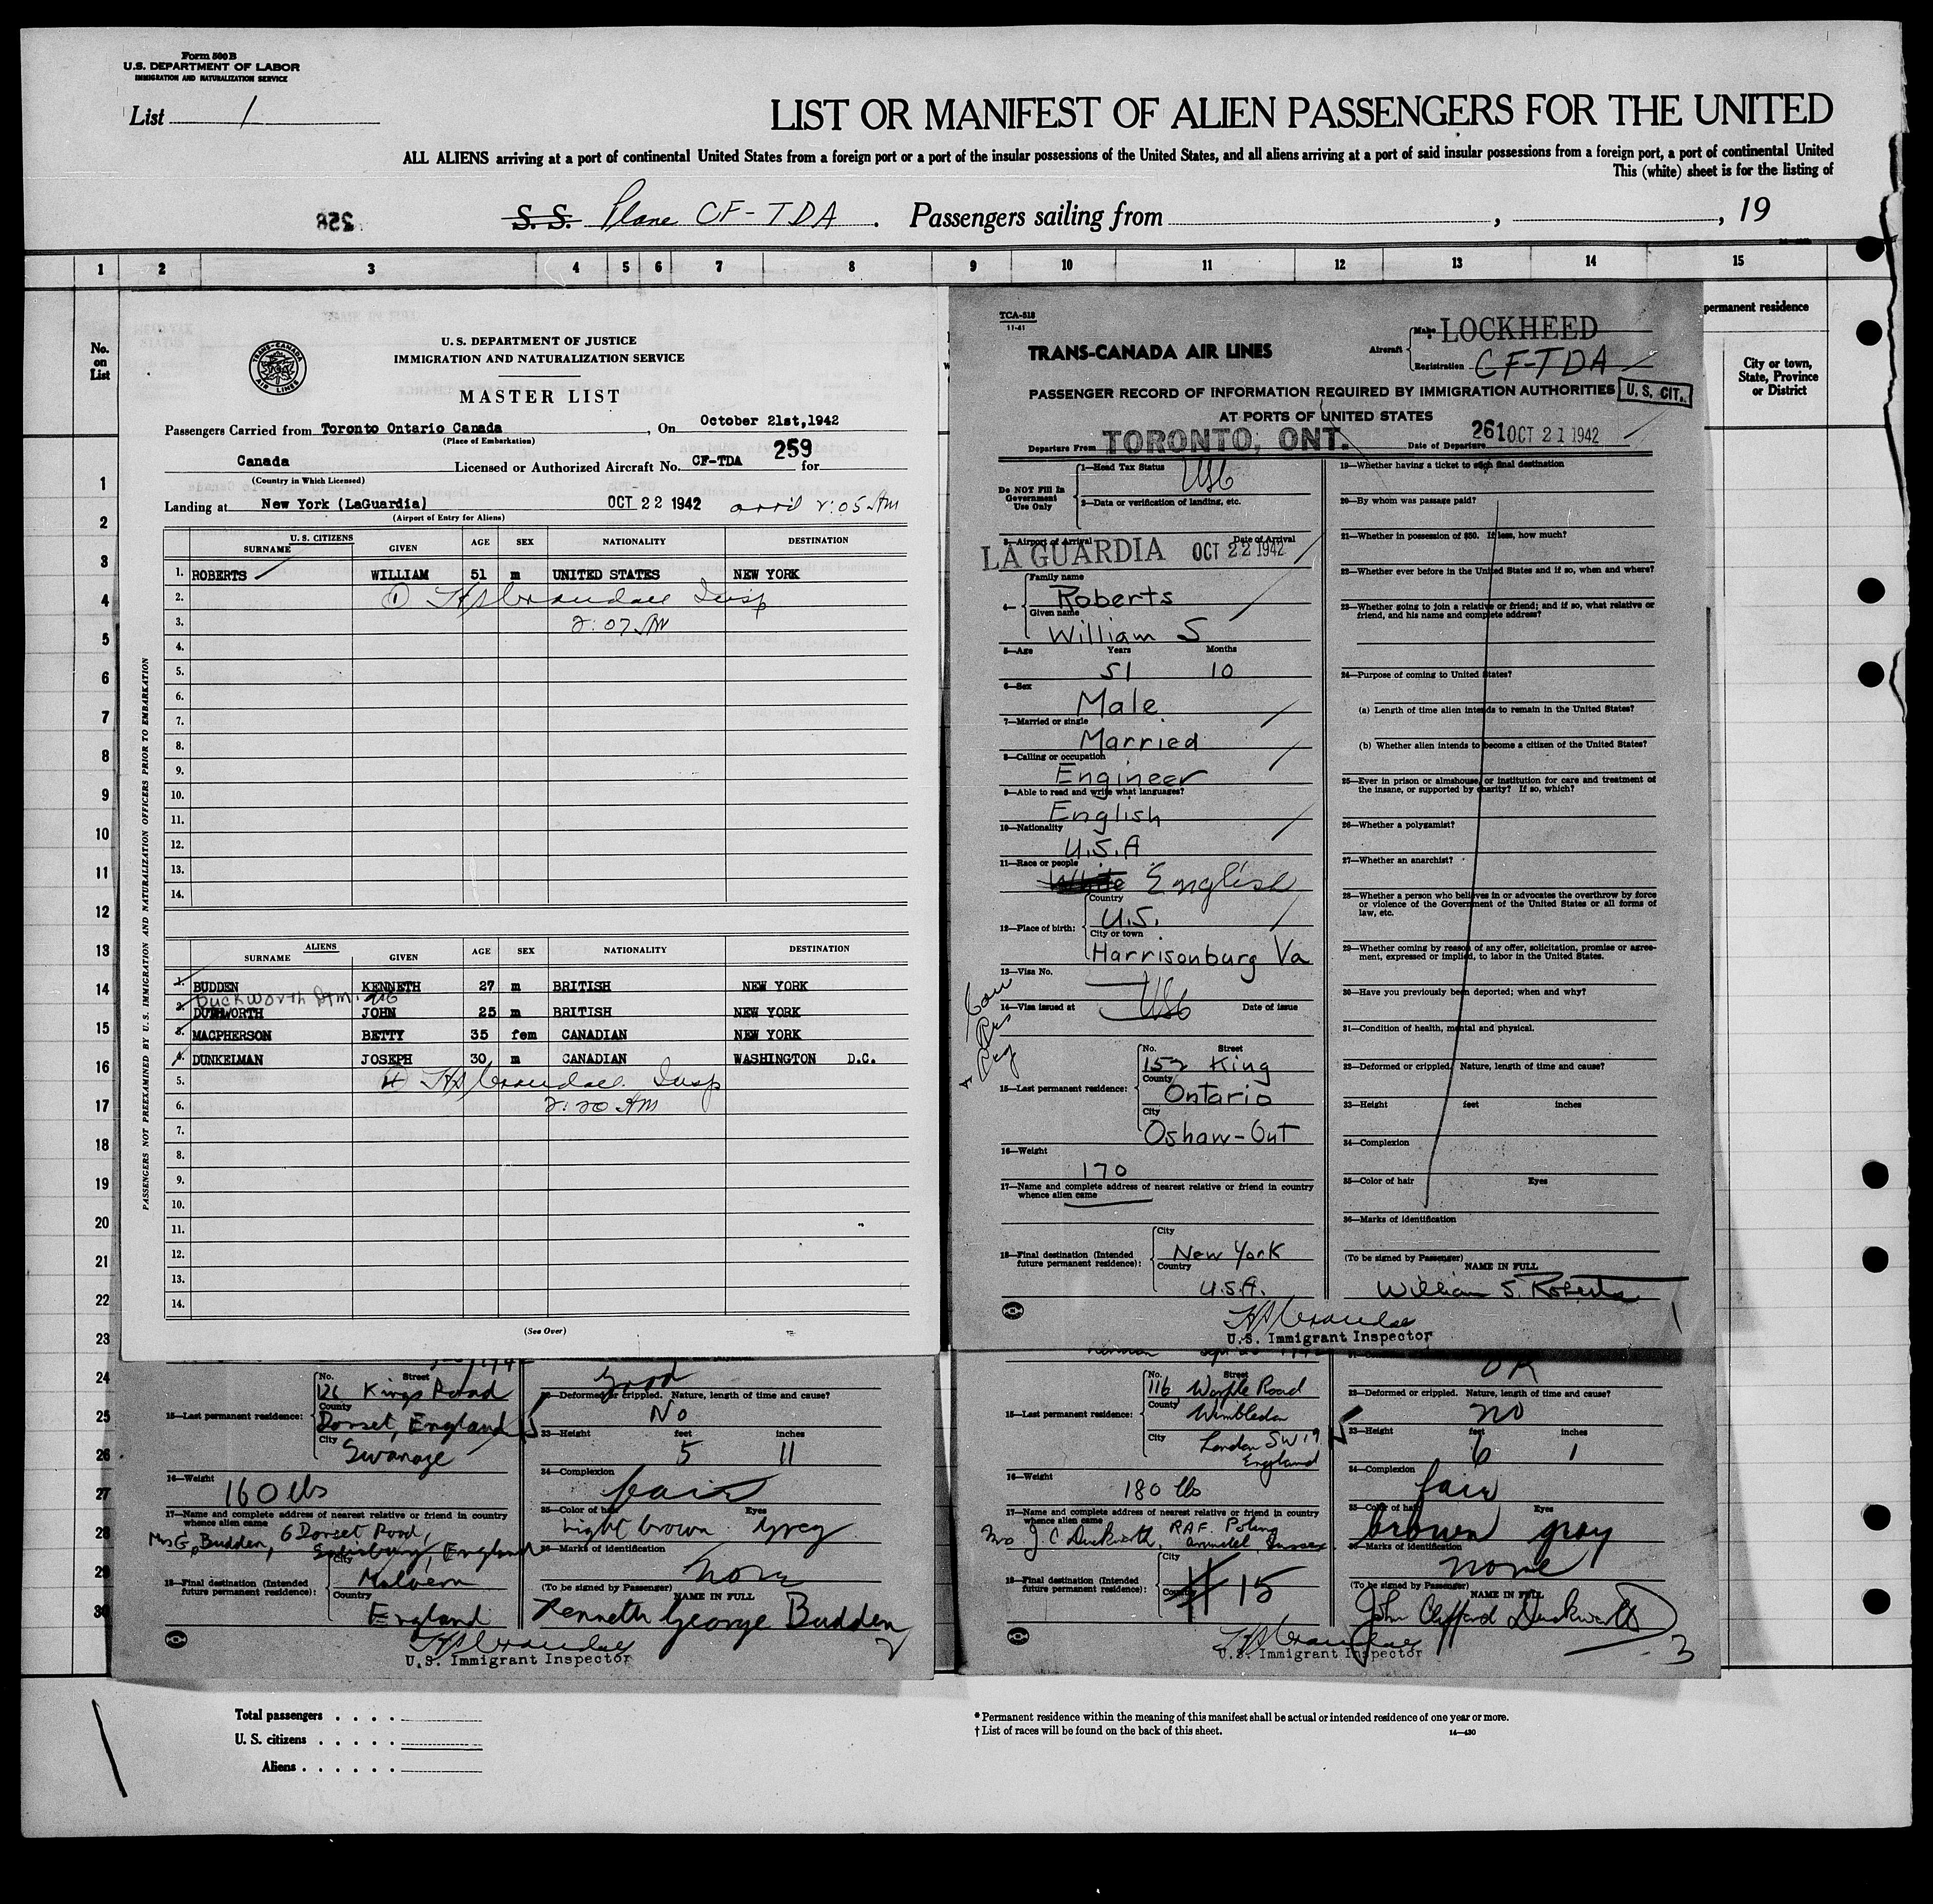 Form 500B
U.S. DEPARTMENT OF LABOR
IMMIGRATION AND NATURALIZATION SERVICE
List 1
LIST OR MANIFEST OF ALIEN PASSENGERS FOR THE UNITED
ALL ALIENS arriving at a port of continental United States from a foreign port or a port of the insular possessions of the United States, and all aliens arriving at a port of said insular possessions from a foreign port, a port of continental United
This (white) sheet is for the listing of
328
S. S. Plane CF-TDA. Passengers sailing from , , 19
1 2 3 4 5 6 7 8 9 10 11 12 13 14 15
permanent residence
No. on List
City or town, State, Province or District
1
2
3
4
5
6
7
8
9
10
11
12
13
14
15
16
17
18
19
20
21
22
23
24
25
26
27
28
29
30
TRANS-CANADA AIR LINES
U. S. DEPARTMENT OF JUSTICE
IMMIGRATION AND NATURALIZATION SERVICE
MASTER LIST
Passengers Carried from Toronto Ontario Canada, On October 21st,1942
(Place of Embarkation)
Canada Licensed or Authorized Aircraft No. CF-TDA 259 for
(Country in Which Licensed)
Landing at New York (LaGuardia) OCT 22 1942 arrd 2:05 AM
(Airport of Entry for Aliens)
PASSENGERS NOT PREEXAMINED BY U.S. IMMIGRATION AND NATURALIZATION OFFICERS PRIOR TO EMBARKATION
U. S. CITIZENS
SURNAME GIVEN AGE SEX NATIONALITY DESTINATION
1. ROBERTS WILLIAM 51 m UNITED STATES NEW YORK
2. (1) Insp
3. 2:07 AM
4.
5.
6.
7.
8.
9.
10.
11.
12.
13.
14.
ALIENS
SURNAME GIVEN AGE SEX NATIONALITY DESTINATION
1. BUDDEN KENNETH 27 m BRITISH NEW YORK
Duckworth
2. JOHN 25 m BRITISH NEW YORK
3. MACPHERSON BETTY 35 fem CANADIAN NEW YORK
4. DUNKELMAN JOSEPH 30 m CANADIAN WASHINGTON D.C.
5. 4 Insp
6. 2:20 AM
7.
8.
9.
10.
11.
12.
13.
14.
(See Over)
TCA-518
11-41
TRANS-CANADA AIR LINES
Aircraft Make LOCKHEED
Registration CF-TDA
PASSENGER RECORD OF INFORMATION REQUIRED BY IMMIGRATION AUTHORITIES U. S. CIT.
AT PORTS OF UNITED STATES
Departure From TORONTO, ONT. Date of Departure 261 OCT 21 1942
Do NOT Fill In Government Use Only
1—Head Tax Status USC
2—Data or verification of landing, etc.
3—Airport of Arrival Date of Arrival
LA GUARDIA OCT 22 1942
4— Family name
Roberts
Given name
William S
5—Age Years Months
51 10
6—Sex
Male
7—Married or single
Married
8—Calling or occupation
Engineer
9—Able to read and write what languages?
English
10—Nationality
U.S.A
11—Race or people
White English
12—Place of birth: Country
U.S.
City or town
Harrisonburg Va
13—Visa No.
14—Visa issued at USC Date of issue
15—Last permanent residence: No. Street
152 King
County
Ontario
City
Oshaw-Ont
16—Weight
170
17—Name and complete address of nearest relative or friend in country whence alien came
18—Final destination (Intended future permanent residence): City
New York
Country
U.S.A.
19—Whether having a ticket to such final destination
20—By whom was passage paid?
21—Whether in possession of $50. If less, how much?
22—Whether ever before in the United States and if so, when and where?
23—Whether going to join a relative or friend; and if so, what relative or friend, and his name and complete address?
24—Purpose of coming to United States?
(a) Length of time alien intends to remain in the United States?
(b) Whether alien intends to become a citizen of the United States?
25—Ever in prison or almshouse, or institution for care and treatment of the insane, or supported by charity? If so, which?
26—Whether a polygamist?
27—Whether an anarchist?
28—Whether a person who believes in or advocates the overthrow by force or violence of the Government of the United States or all forms of law, etc.
29—Whether coming by reason of any offer, solicitation, promise or agreement, expressed or implied, to labor in the United States.
30—Have you previously been deported; when and why?
31—Condition of health, mental and physical.
32—Deformed or crippled. Nature, length of time and cause?
33—Height feet inches
34—Complexion
35—Color of hair Eyes
36—Marks of identification
(To be signed by Passenger) NAME IN FULL
William S. Roberts
U.S. Immigrant Inspector 1
15—Last permanent residence: No. Street
126 Kings Road
County
Dorset, England
City
Swanage
16—Weight
160 lbs
17—Name and complete address of nearest relative or friend in country whence alien came
Mrs G. Budden, 6 Dorset Road, Salisbury, England
18—Final destination (Intended future permanent residence): City
Malvern
Country
England
good
32—Deformed or crippled. Nature, length of time and cause?
No
33—Height feet inches
5 11
34—Complexion
fair
35—Color of hair Eyes
Light brown Grey
36—Marks of identification
None
(To be signed by Passenger) NAME IN FULL
Kenneth George Budden
U.S. Immigrant Inspector 2
15—Last permanent residence: No. Street
116 Worple Road
County
Wimbledon
City
London SW 19
England
16—Weight
180 lbs
17—Name and complete address of nearest relative or friend in country whence alien came
Mrs J. C. Duckworth, RAF. Poling Arundel, Sussex
18—Final destination (Intended future permanent residence): City
Country
# 15
OK
32—Deformed or crippled. Nature, length of time and cause?
no
33—Height feet inches
6 1
34—Complexion
fair
35—Color of hair Eyes
brown gray
36—Marks of identification
none
(To be signed by Passenger) NAME IN FULL
John Clifford Duckworth
U.S. Immigrant Inspector 3
Total passengers . . . .
U. S. citizens . . . . .
Aliens . . . . . .
* Permanent residence within the meaning of this manifest shall be actual or intended residence of one year or more.
† List of races will be found on the back of this sheet. 14—430